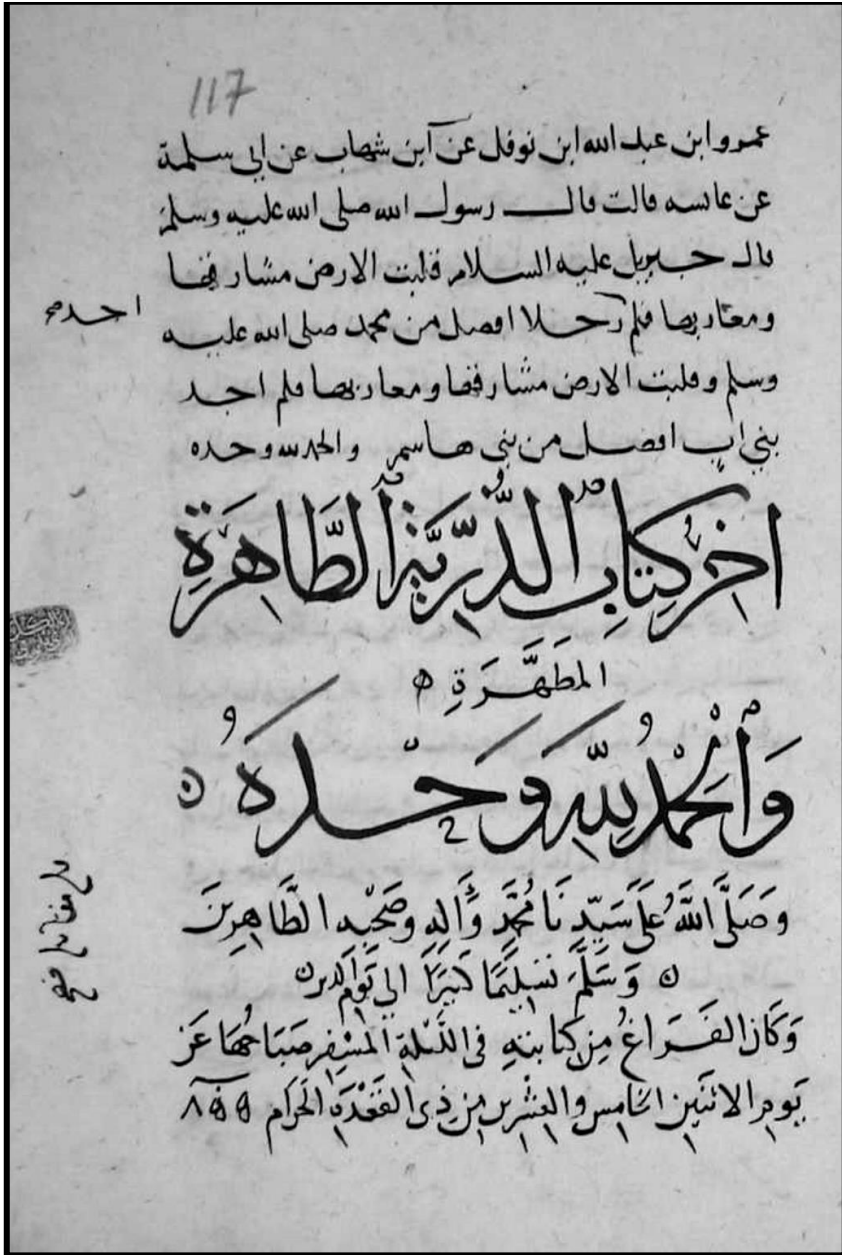 117
عمرو ابن عبد الله ابن نوفل عن ابن شهاب عن ابي سلمة
عن عائشه قالت قال رسول الله صلى الله عليه وسلم
قال جبريل عليه السلام قلبت الارض مشارقها
ومغاربها فلم رجلا افضل من محمد صلى الله عليه
احد صح
وسلم وقلبت الارض مشارقها ومغاربها فلم اجد
بني اب افضل من بني هاشم والحمد لله وحده
اخِرُ كِتَابِ الذُّرِّيَّةِ الطَّاهِرَةِ
المُطَهَّرَةِ
وَالْحَمْدُ لِلَّهِ وَحْدَهُ
وَصَلَّى اللَّهُ عَلَى سَيِّدِنَا مُحَمَّدٍ وَآلِهِ وَصَحْبِهِ الطَّاهِرِينَ
وَسَلَّمَ تَسْلِيمًا كَثِيرًا الى يَوْمِ الدين
وَكَانَ الفَرَاغُ مِنْ كِتَابتِهِ فى اللَّيْلَةِ المُسْفِرِ صَبَاحُهَا عَنْ
يَومِ الاثنَينِ الخَامِس والعِشْرِينَ مِن ذى القَعْدَةِ الحَرَام ٨٥٥